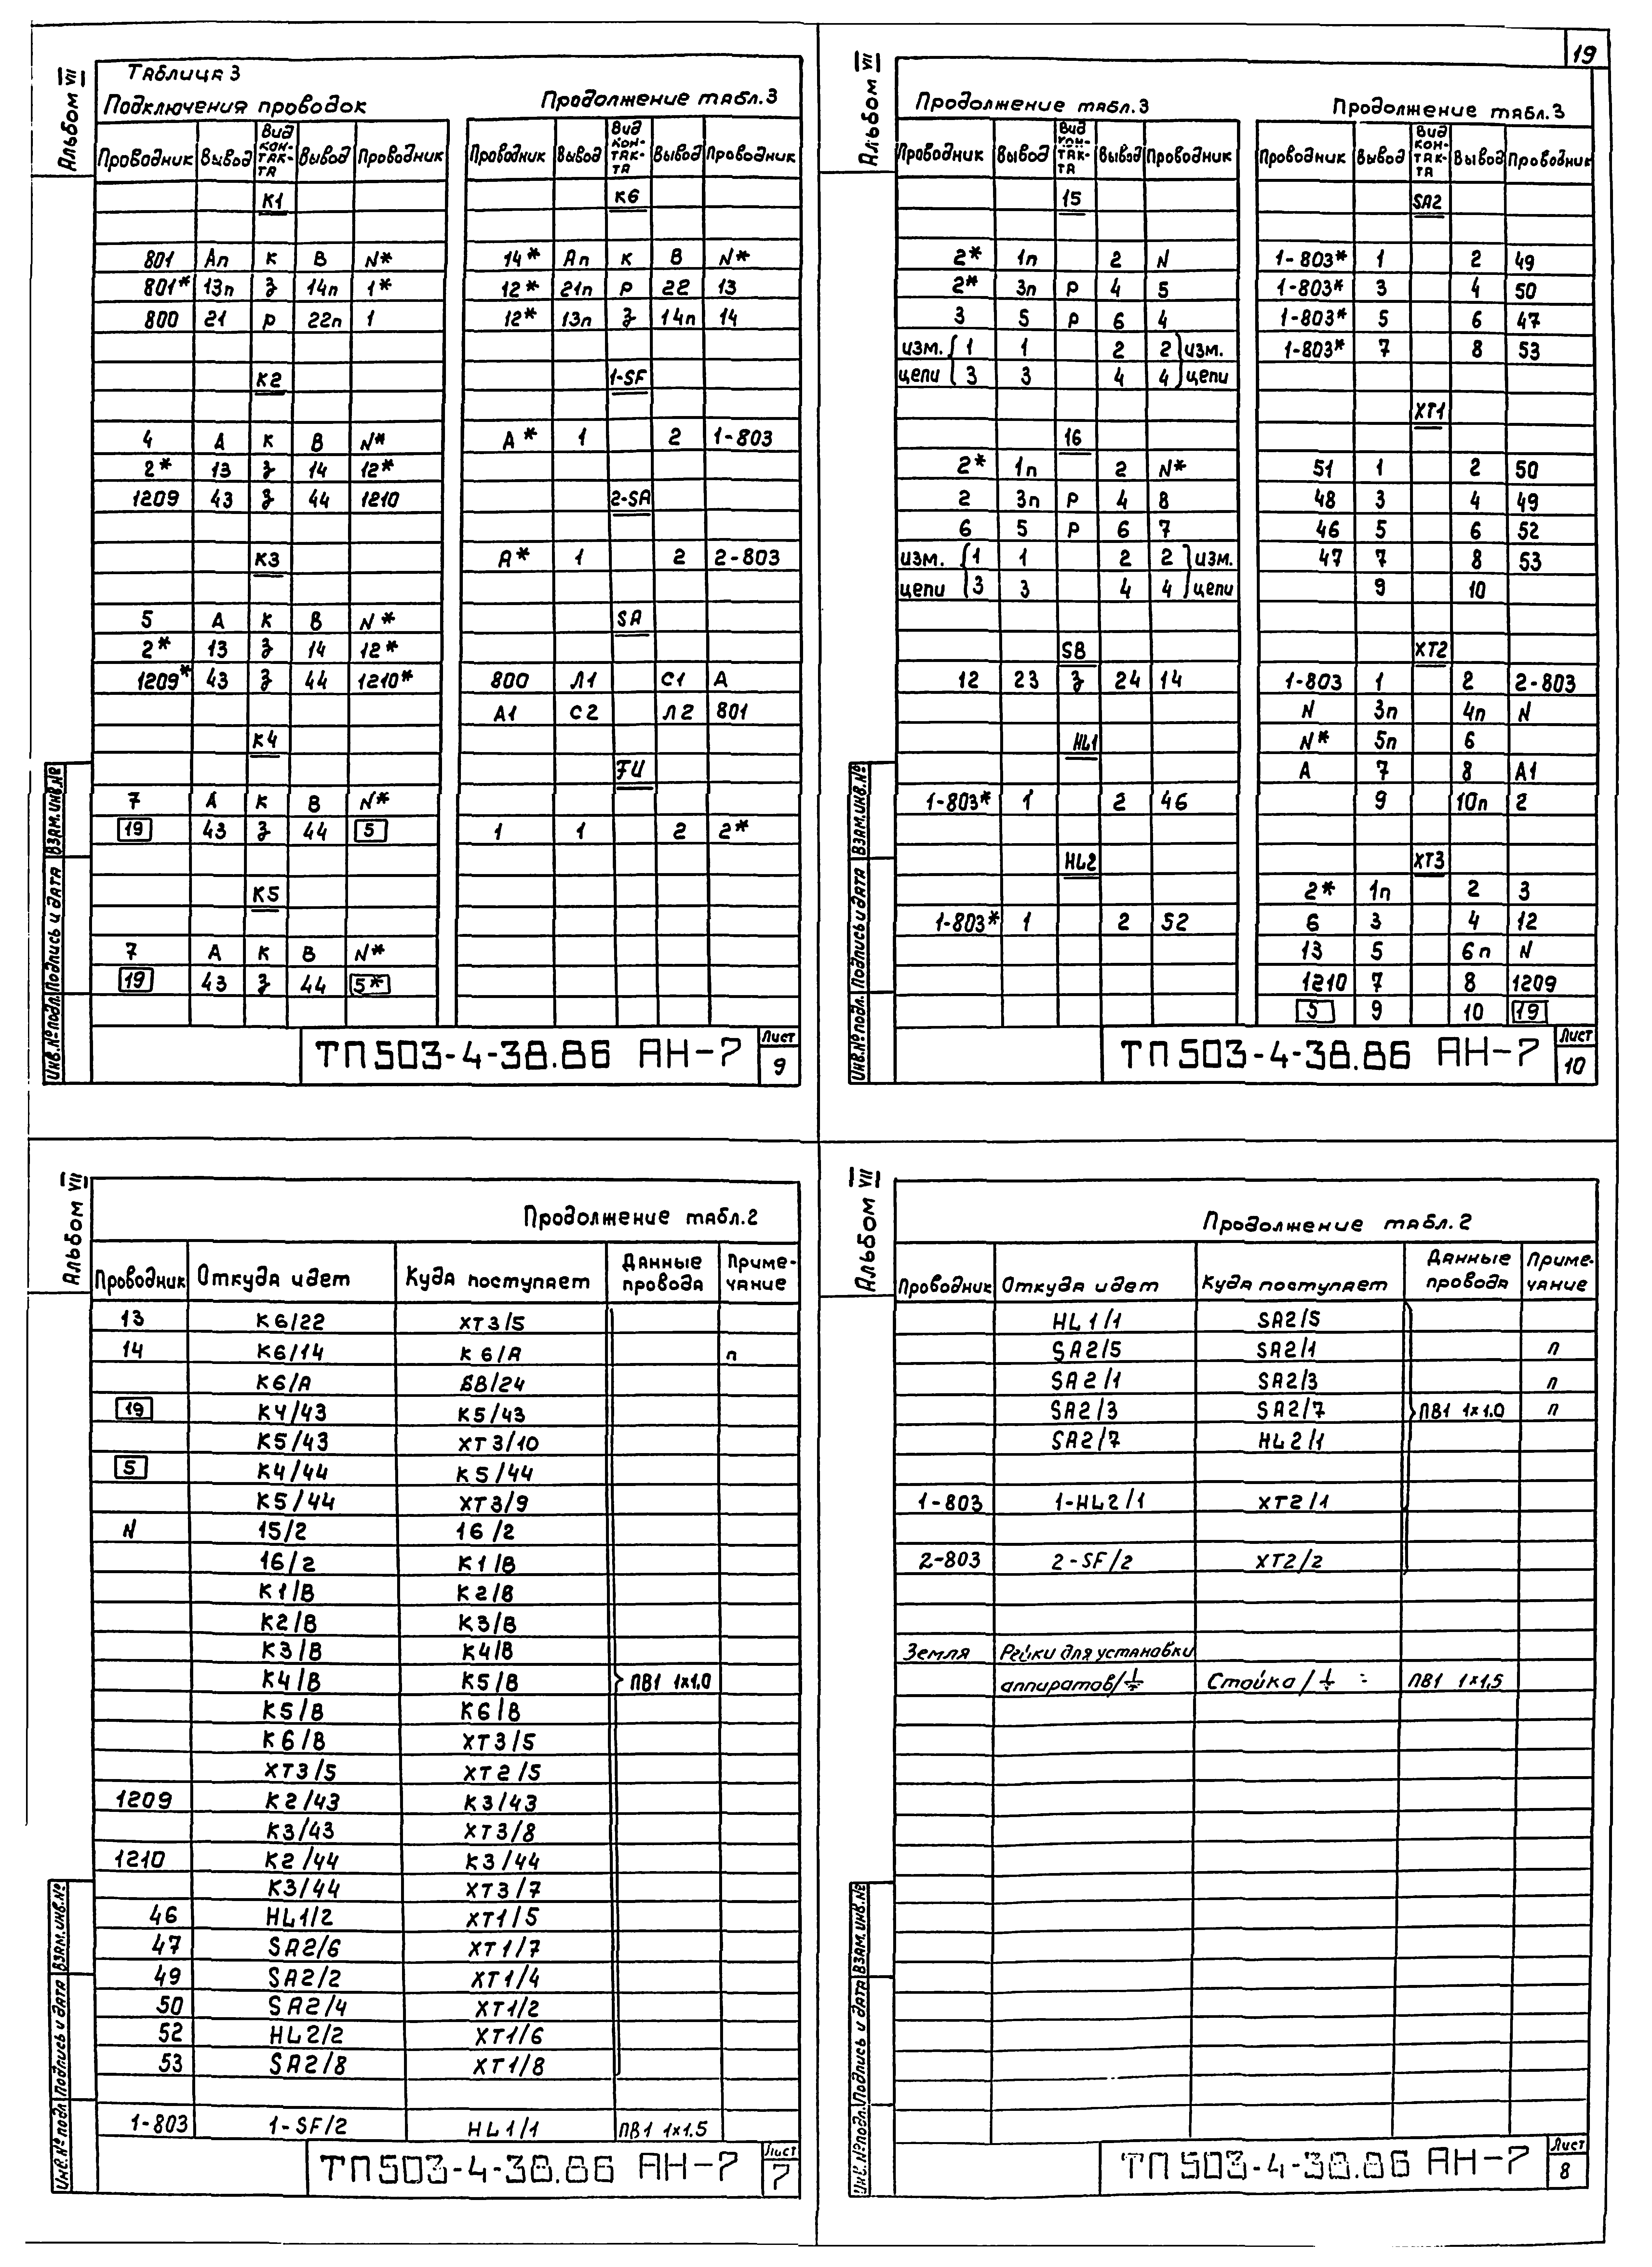 19
Альбом VII
Таблица 3
Подключения проводок
Проводник Вывод Вид контакта Вывод Проводник
К1
801 Ап к В N*
801* 13п з 14п 1*
800 21 р 22п 1
К2
4 А к В N*
2* 13 з 14 12*
1209 43 з 44 1210
К3
5 А к В N*
2* 13 з 14 12*
1209* 43 з 44 1210*
К4
7 А к В N*
19 43 з 44 5
К5
7 А к В N*
19 43 з 44 5*
Продолжение табл.3
Проводник Вывод Вид контакта Вывод Проводник
К6
14* Ап к В N*
12* 21п р 22 13
12* 13п з 14п 14
1-SF
А* 1 2 1-803
2-SA
А* 1 2 2-803
SA
800 Л1 С1 А
А1 С2 Л2 801
FU
1 1 2 2*
Инв.№ подл. Подпись и дата Взам.инв.№
ТП503-4-38.86 АН-7
Лист
9
Альбом VII
Продолжение табл.3
Проводник Вывод Вид контакта Вывод Проводник
15
2* 1п 2 N
2* 3п р 4 5
3 5 р 6 4
изм. 1 1 2 2 изм.
цепи 3 3 4 4 цепи
16
2* 1п 2 N*
2 3п р 4 8
6 5 р 6 7
изм. 1 1 2 2 изм.
цепи 3 3 4 4 цепи
SB
12 23 з 24 14
HL1
1-803* 1 2 46
HL2
1-803* 1 2 52
Продолжение табл.3
Проводник Вывод Вид контакта Вывод Проводник
SA2
1-803* 1 2 49
1-803* 3 4 50
1-803* 5 6 47
1-803* 7 8 53
XT1
51 1 2 50
48 3 4 49
46 5 6 52
47 7 8 53
9 10
XT2
1-803 1 2 2-803
N 3п 4п N
N* 5п 6
А 7 8 А1
9 10п 2
XT3
2* 1п 2 3
6 3 4 12
13 5 6п N
1210 7 8 1209
5 9 10 19
Инв.№ подл. Подпись и дата Взам.инв.№
ТП503-4-38.86 АН-7
Лист
10
Альбом VII
Продолжение табл.2
Проводник Откуда идет Куда поступает Данные провода Примечание
13 К6/22 XT3/5
14 К6/14 К6/А п
К6/А SB/24
19 К4/43 К5/43
К5/43 XT3/10
5 К4/44 К5/44
К5/44 XT3/9
N 15/2 16/2
16/2 К1/В
К1/В К2/В
К2/В К3/В
К3/В К4/В
К4/В К5/В ПВ1 1х1,0
К5/В К6/В
К6/В XT3/5
XT3/5 XT2/5
1209 К2/43 К3/43
К3/43 XT3/8
1210 К2/44 К3/44
К3/44 XT3/7
46 HL1/2 XT1/5
47 SA2/6 XT1/7
49 SA2/2 XT1/4
50 SA2/4 XT1/2
52 HL2/2 XT1/6
53 SA2/8 XT1/8
1-803 1-SF/2 HL1/1 ПВ1 1х1.5
Инв.№ подл. Подпись и дата Взам.инв.№
ТП503-4-38.86 АН-7
Лист
7
Альбом VII
Продолжение табл.2
Проводник Откуда идет Куда поступает Данные провода Примечание
HL1/1 SA2/5
SA2/5 SA2/1 п
SA2/1 SA2/3 п
SA2/3 SA2/7 ПВ1 1х1.0 п
SA2/7 HL2/1
1-803 1-HL2/1 XT2/1
2-803 2-SF/2 XT2/2
Земля Рейки для установки
аппаратов/⏚ Стойка/⏚ ПВ1 1х1,5
Инв.№ подл. Подпись и дата Взам.инв.№
ТП503-4-38.86 АН-7
Лист
8